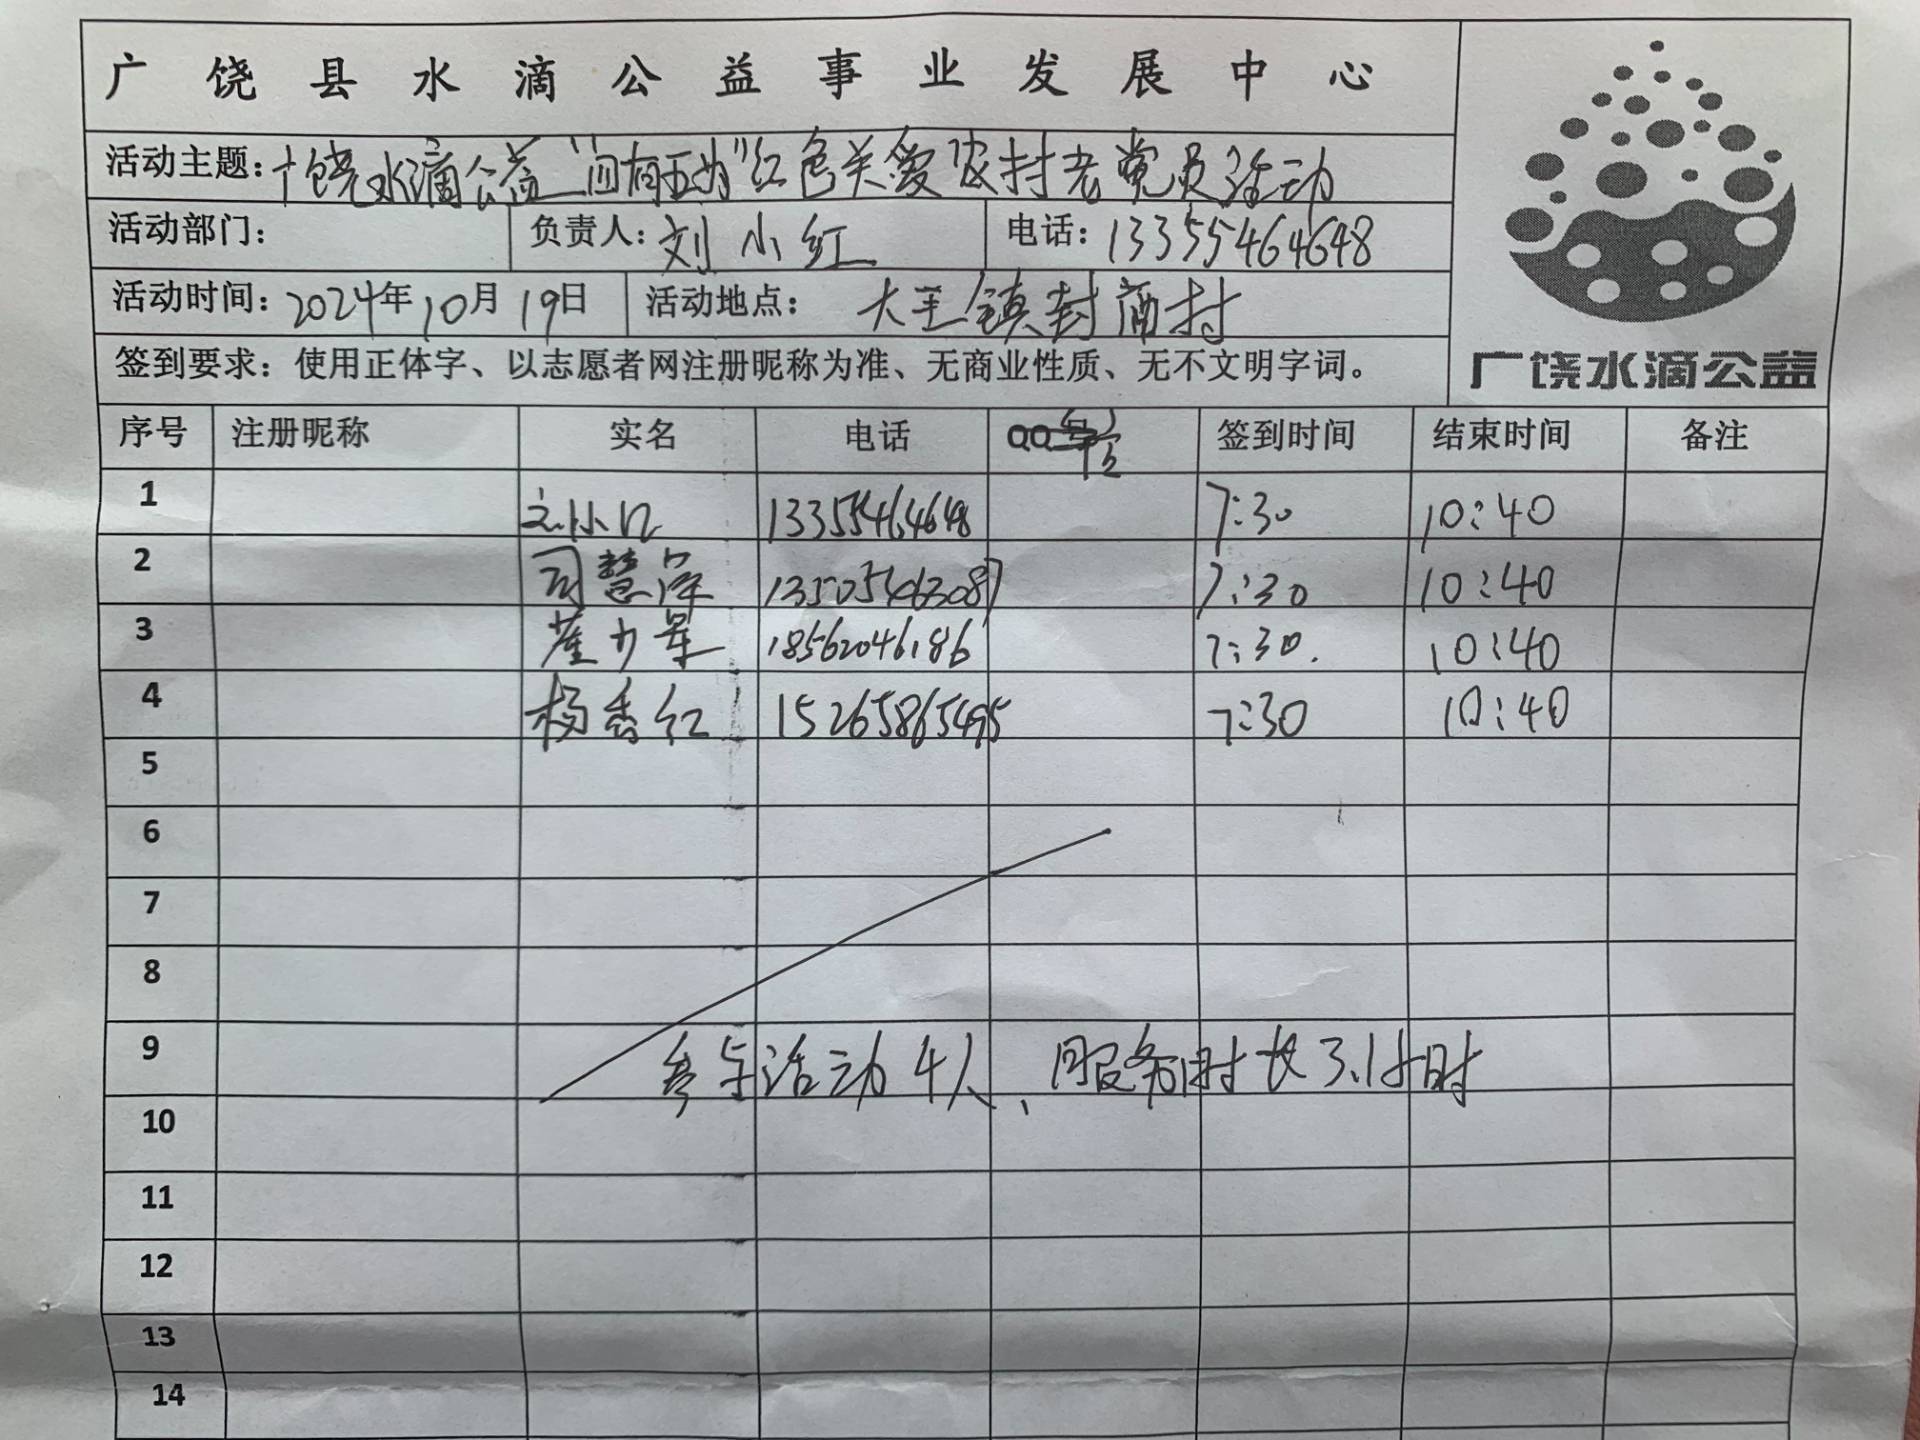 广饶县水滴公益事业发展中心
活动主题：广饶水滴公益"间有五为"红色关爱农村老党员活动
活动部门： 负责人：刘小红 电话：13355464648
活动时间：2024年10月19日 活动地点：大王镇封商村
广饶水滴公益
签到要求：使用正体字、以志愿者网注册昵称为准、无商业性质、无不文明字词。
序号 注册昵称 实名 电话 QQ号 签到时间 结束时间 备注
1 刘小红 13355464648 7:30 10:40
2 司慧萍 13505463087 7:30 10:40
3 崔力军 18562046186 7:30. 10:40
4 杨香红 15265865495 7:30 10:40
5
6
7
8
9 参与活动4人、服务时长3.1小时
10
11
12
13
14